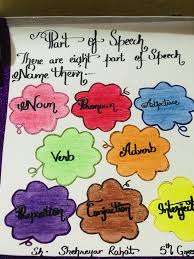 Part of Speech
There are eight part of Speech
Name them:-
Noun Pronoun Adjective
Verb Adverb
Preposition Conjuction Interjecti
Sh- Shehreyar Rahat 5th Gree